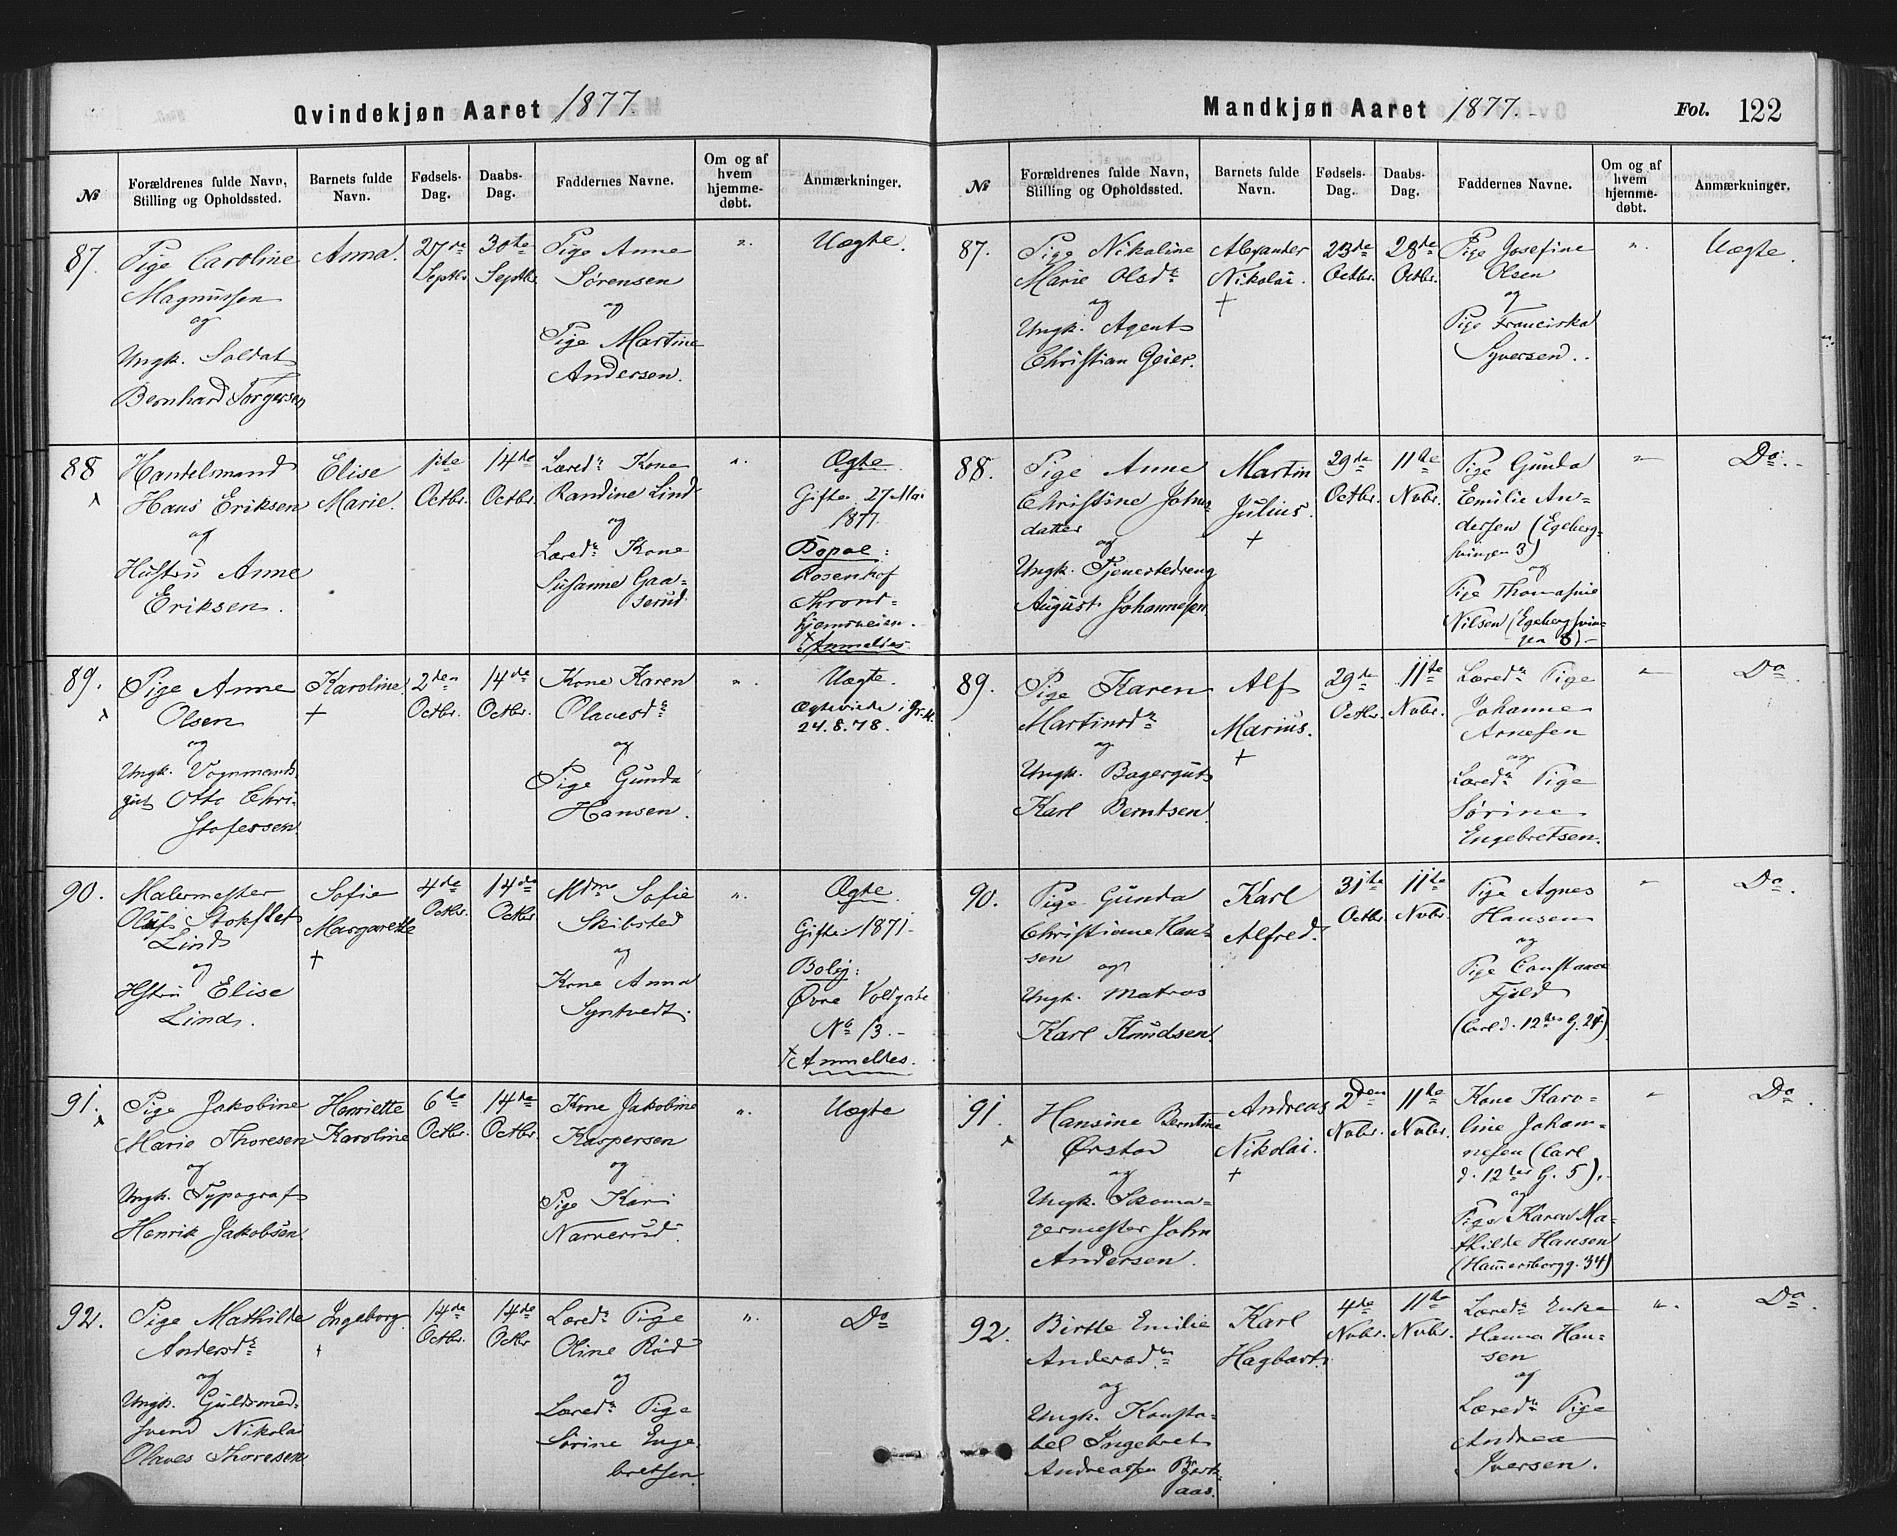 Qvindekjøn Aaret 1877.
№
Forældrenes fulde Navn, Stilling og Opholdssted.
Barnets fulde Navn.
Fødsels-Dag.
Daabs-Dag.
Faddernes Navne.
Om og af hvem hjemme-døbt.
Anmærkninger.
87.
Pige Caroline
Magnussen
og
Ungk. Soldat
Bernhard Torgersen
Anna.
27de
Septbr.
30te
Septbr.
Pige Anne
Sørensen
og
Pige Martine
Andersen.
"
Uægte.
88
Handelsmand
Hans Eriksen
og
Hustru Anne
Eriksen.
Elise
Marie.
1ste
Octbr.
14de
Octbr.
Læred: Kone
Randine Lind
og
Læred: Kone
Susanne Gaa-
serud.
"
Ægte.
Gifte 27 Mai
1877.
Bopæl:
Rosenhof
Thrond-
hjemsveien.
Anmeldes
89.
Pige Anne
Olsen
og
Ungk. Vognmands-
gut Otto Chri-
stofersen.
Karoline.
+
2den
Octbr.
14de
Octbr.
Kone Karen
Olavesdr
og
Pige Gunda
Hansen.
"
Uægte.
Ægteviede i Gr. k.
24.8.78.
90.
Malermester
Oluf Stokflet
Lind
og
Hstru Elise
Lind.
Sofie
Margarethe
+
4de
Octbr.
14de
Octbr
Mdm Sofie
Skibsted
og
Kone Anna
Syntvedt.
"
Ægte.
Gifte 1871.
Bolig:
Øvre Voldgate
No 13.-
Anmeldes.
91.
Pige Jakobine
Marie Thoresen
og
Ungk. Typograf
Henrik Jakobsen.
Henriette
Karoline
6te
Octbr.
14de
Octbr.
Kone Jakobine
Kaspersen
og
Pige Kari
Narverud.
"
Uægte
92.
Pige Mathilde
Andersdr
og
Ungk. Guldsmed-
svend Nikolai
Olaves Thoresen
Ingeborg.
14de
Octbr.
14de
Octbr
Læred: Pige
Oline Rød
og
Læred: Pige
Sørine Enge-
bretsen
"
Do
Mandkjøn Aaret 1877.
Fol. 122
№
Forældrenes fulde Navn, Stilling og Opholdssted.
Barnets fulde Navn.
Fødsels-Dag.
Daabs-Dag.
Faddernes Navne.
Om og af hvem hjemme-døbt.
Anmærkninger.
87.
Pige Nikoline
Marie Olsdr
og
Ungk. Agent
Christian Geier.
Alexander
Nikolai.
+
23de
Octbr.
28de
Octbr.
Pige Josefine
Olsen
og
Pige Franciska
Syversen.
"
Uægte.
88.
Pige Anne
Christine Johns-
datter
og
Ungk. Tjenestedreng
August Johannesen
Martin
Julius.
+
29de
Octbr.
11te
Nvbr.
Pige Gunda
Emilie An-
dersen (Egeberg-
svingen 3)
og
Pige Thomasine
Nilsen (Egebergsvin-
gen 3)
"
Do.
89.
Pige Karen
Martinsdr
og
Ungk. Bagergut
Karl Berntsen.
Alf
Marius.
+
29de
Octbr.
11te
Nvbr.
Læred: Pige
Johanne
Arnesen
og
Læred: Pige
Sørine
Engebretsen.
"
Do
90.
Pige Gunda
Christiane Han-
sen
og
Ungk. Matros
Karl Knudsen.
Karl
Alfred.
31te
Octbr.
11te
Nvbr.
Pige Agnes
Hansen
og
Pige Constance
Fjeld
(Carl d. 12tes G. 24)
"
Do.
91.
Hansine Berntine
Ørstad
og
Ungk. Skoma-
germester John
Andersen.
Andreas
Nikolai.
+
2den
Nvbr.
11te
Nvbr.
Kone Karo-
line Johan-
nesen (Carl
d. 12tes G. 5).
og
Pige Karen Ma-
thilde Hansen
(Hammersborgg. 34)
"
Do
92.
Birthe Emilie
Andersdr
og
Ungk. Konsta-
bel Ingebret
Andreassen
Karl
Hagbart.
4de
Nvbr.
11te
Nvbr.
Læred: Enke
Hanna Han-
sen
og
Læred: Pige
Andrea
Iversen.
"
Do.